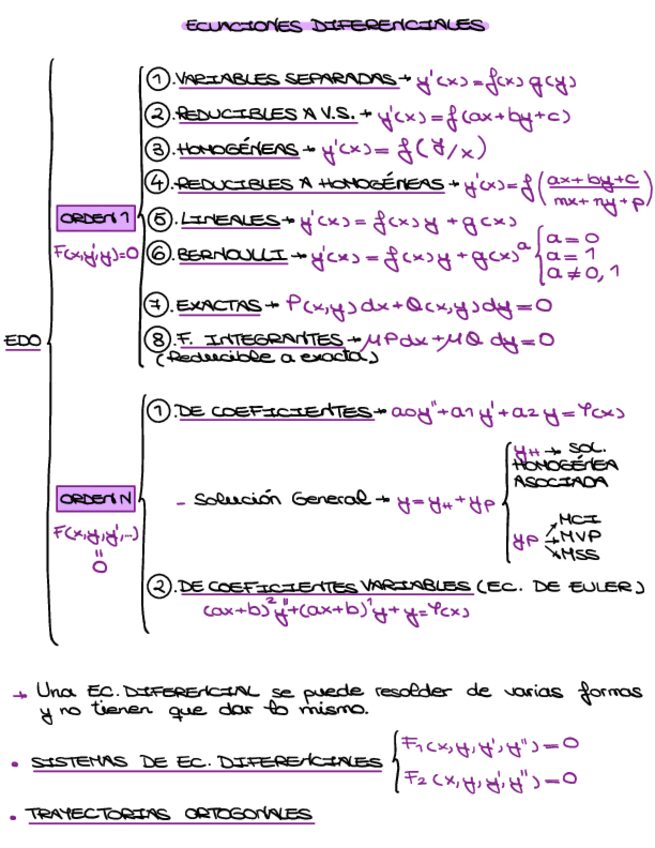 ECUACIONES DIFERENCIALES
EDO
ORDEN 1
F(x,y',y)=0
①. VARIABLES SEPARADAS → y'(x) = f(x) g(y)
②. REDUCIBLES A V.S. → y'(x) = f(ax+by+c)
③. HOMOGÉNEAS → y'(x) = f(y/x)
④. REDUCIBLES A HOMOGÉNEAS → y'(x) = f((ax+by+c)/(mx+ny+p))
⑤. LINEALES → y'(x) = f(x)y + g(x)
⑥. BERNOULLI → y'(x) = f(x)y + g(x)^a { a=0
a=1
a≠0,1
⑦. EXACTAS → P(x,y)dx + Q(x,y)dy = 0
⑧. F. INTEGRANTES → μPdx + μQ dy = 0
(Reducible a exacta)
ORDEN N
F(x,y,y',..)
"
0
①. DE COEFICIENTES → a0y" + a1y' + a2y = φ(x)
- Solución General → y = yH + yP
yH → SOL.
HOMOGÉNEA
ASOCIADA
yP → MCI
→ MVP
→ MSS
②. DE COEFICIENTES VARIABLES (EC. DE EULER)
(ax+b)²y" + (ax+b)¹y + y = φ(x)
→ Una EC. DIFERENCIAL se puede resolder de varias formas
y no tienen que dar lo mismo.
• SISTEMAS DE EC. DIFERENCIALES { F1(x,y,y',y") = 0
F2(x,y,y',y") = 0
• TRAYECTORIAS ORTOGONALES